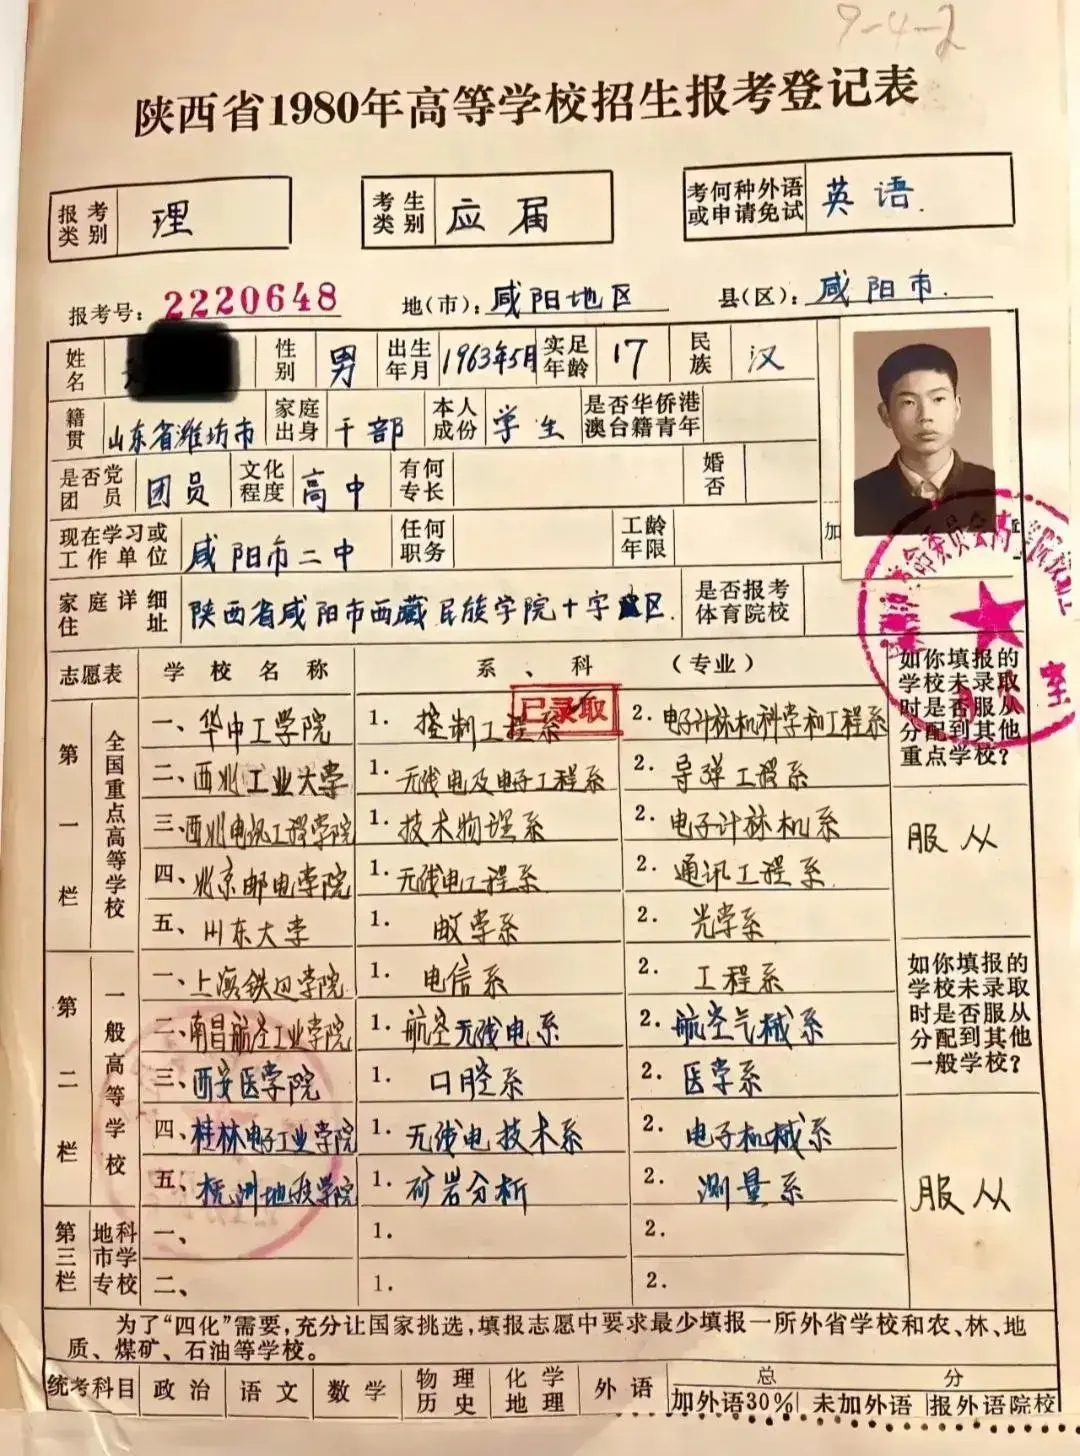 9-4-2
陕西省1980年高等学校招生报考登记表
报考类别 理 考生类别 应届 考何种外语或申请免试 英语.
报考号: 2220648 地(市): 咸阳地区 县(区): 咸阳市.
姓名 性别 男 出生年月 1963年5月 实足年龄 17 民族 汉
籍贯 山东省潍坊市 家庭出身 干部 本人成份 学生 是否华侨港澳台籍青年
是否党团员 团员 文化程度 高中 有何专长 婚否
现在学习或工作单位 咸阳市二中 任何职务 工龄年限 加
家庭详细住址 陕西省咸阳市西藏民族学院十字 区. 是否报考体育院校
志愿表 学校名称 系、科 (专业) 如你填报的学校未录取时是否服从分配到其他重点学校?
已录取
第一栏 全国重点高等学校
一、华中工学院 1. 控制工程系 2. 电子计标机科学和工程系
二、西北工业大学 1. 无线电及电子工程系 2. 导弹工程系
三、西北电讯工程学院 1. 技术物理系 2. 电子计标机系 服从
四、北京邮电学院 1. 无线电工程系 2. 通讯工程系
五、山东大学 1. 数学系 2. 光学系
第二栏 一般高等学校 如你填报的学校未录取时是否服从分配到其他一般学校?
一、上海铁道学院 1. 电信系 2. 工程系
二、南昌航空工业学院 1. 航空无线电系 2. 航空气械系
三、西安医学院 1. 口腔系 2. 医学系
四、桂林电子工业学院 1. 无线电技术系 2. 电子机械系
五、 地质学院 1. 矿岩分析 2. 测量系 服从
第三栏 地市专科学校
一、 1. 2.
二、 1. 2.
为了“四化”需要,充分让国家挑选,填报志愿中要求最少填报一所外省学校和农、林、地
质、煤矿、石油等学校。
统考科目 政治 语文 数学 物理历史 化学地理 外语 总分 加外语30% 未加外语 报外语院校